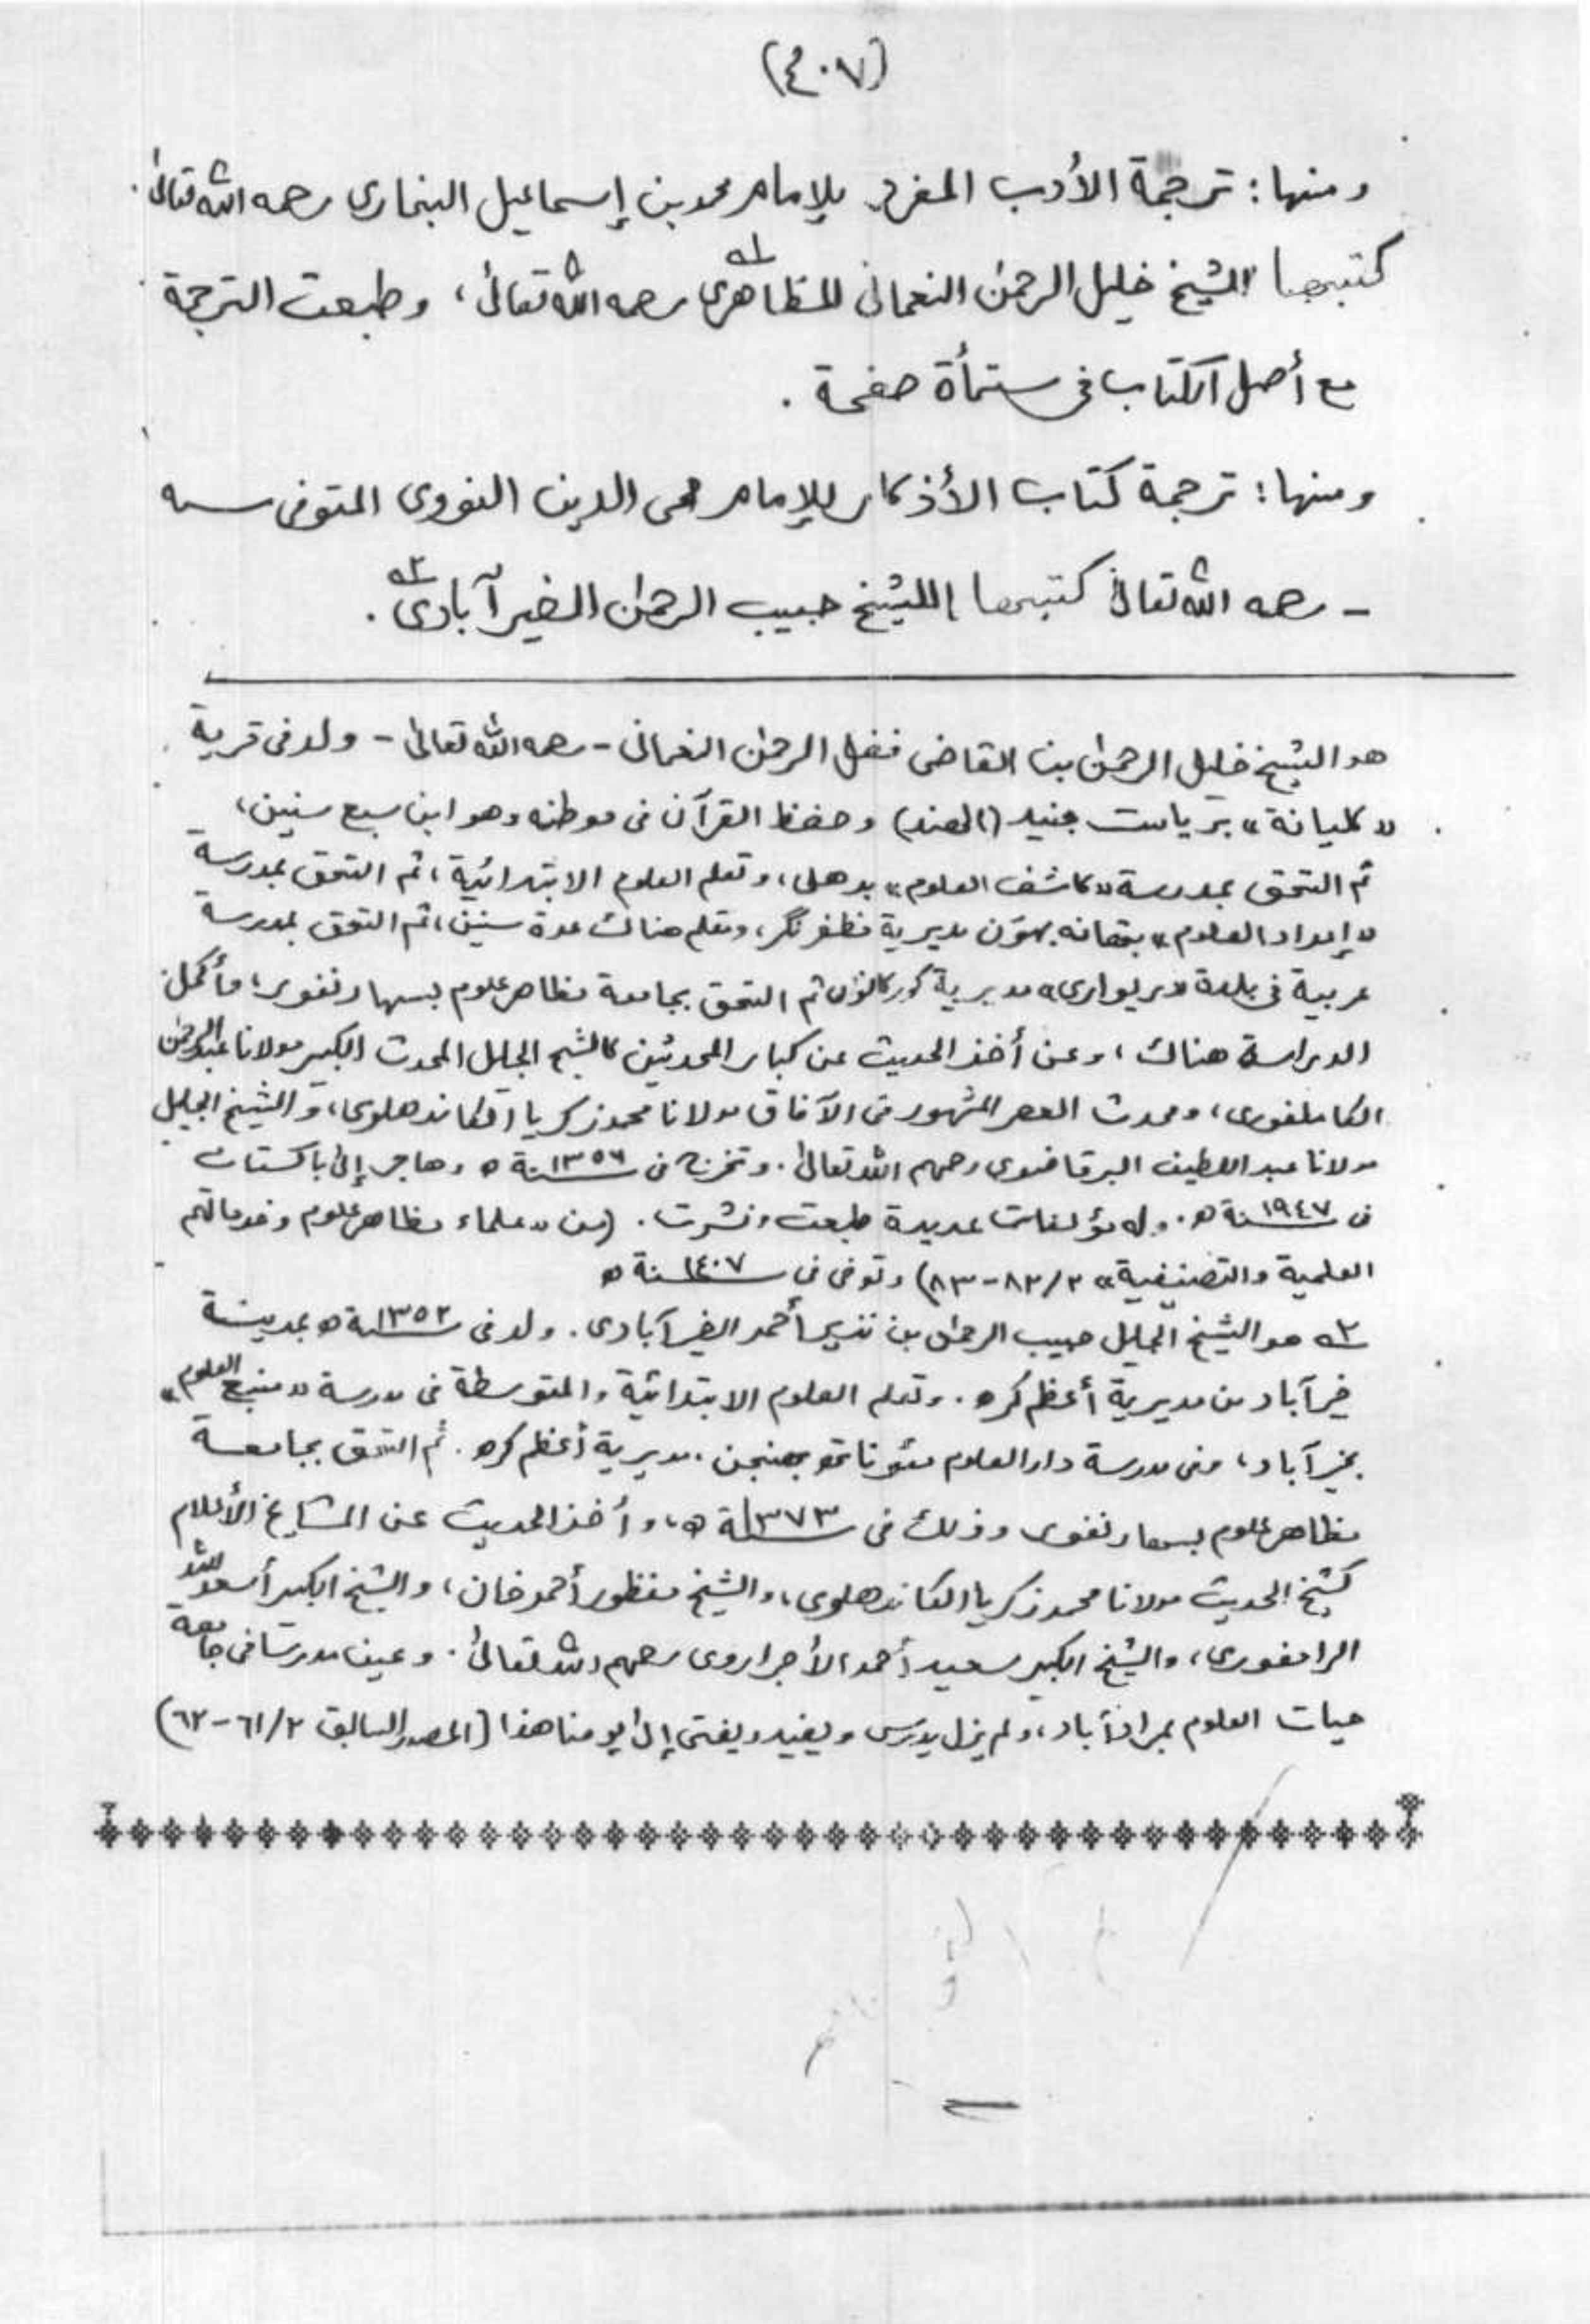 (٤٠٧)
ومنها: ترجمة الأدب المفرد للإمام محمد بن إسماعيل البخاري رحمه الله تعالىٰ.
كتبها الشيخ خليل الرحمٰن النعمانى المظاهرى ١ه رحمه الله تعالىٰ، وطبعت الترجمة
مع أصل الكتاب فى ستمأة صفحة .
ومنها: ترجمة كتاب الأذكار للإمام محى الدين النووى المتوفى سـه
ـ رحمه الله تعالىٰ كتبها الشيخ حبيب الرحمٰن الخيرآبادى ٢ه .
هو الشيخ خليل الرحمٰن بن القاضى فضل الرحمٰن النعمانى - رحمه الله تعالىٰ - ولد فى قرية
«كليانة» برياست جنيد (الهند) وحفظ القرآن فى موطنه وهو ابن سبع سنين،
ثم التحق بمدرسة «كاشف العلوم» بدهلى، وتعلم العلوم الابتدائية، ثم التحق بمدرسة
«إمداد العلوم» بتهانه بهون مديرية مظفر نگر، وتعلم هناك عدة سنين، ثم التحق بمدرسة
عربية فى بلدة «ريوارى» مديرية ثم التحق بجامعة مظاهر علوم بسهارنفور، وأكمل
الدراسة هناك، وعن أخذ الحديث عن كبار المحدثين كالشيخ الجليل المحدث الكبير مولانا عبد الرحمٰن
الكاملفورى، ومحدث العصر المشهور فى الآفاق مولانا محمد زكريا الكاندهلوى، والشيخ الجليل
مولانا عبد اللطيف البرقاضوى رحمهم الله تعالىٰ. وتخرج فى سنة ١٣٥٦ ه وهاجر إلىٰ باكستان
فى سنة ١٩٤٧ ه. وله مؤلفات عديدة طبعت ونشرت. (من «علماء مظاهر علوم وخدماتهم
العلمية والتصنيفية» ٢/٨٢-٨٣) وتوفى فى سنة ١٤٠٧ ه
٢ه هو الشيخ الجليل حبيب الرحمٰن بن نذير أحمد الخيرآبادى. ولد فى سنة ١٣٥٢ ه بمدينة
خيرآباد من مديرية أعظم كره. وتعلم العلوم الابتدائية والمتوسطة فى مدرسة «منبع العلوم»
بخيرآباد، وفى مدرسة دار العلوم مئوناتهـ بهنجن، مديرية أعظم كره. ثم التحق بجامعة
مظاهر علوم بسهارنفور وذلك فى سنة ١٣٧٣ ه، وأخذ الحديث عن المشايخ الأعلام
كشيخ الحديث مولانا محمد زكريا الكاندهلوى، والشيخ منظور أحمد خان، والشيخ الكبير أسعد الله
الرامفورى، والشيخ الكبير سعيد أحمد الأجراروى رحمهم الله تعالىٰ. وعين مدرسًا فى جامعة
حيات العلوم بمرادآباد، ولم يزل يدرّس ويفيد ويفتى إلىٰ يومنا هذا (المصدر السابق ٢/٦١-٦٢)